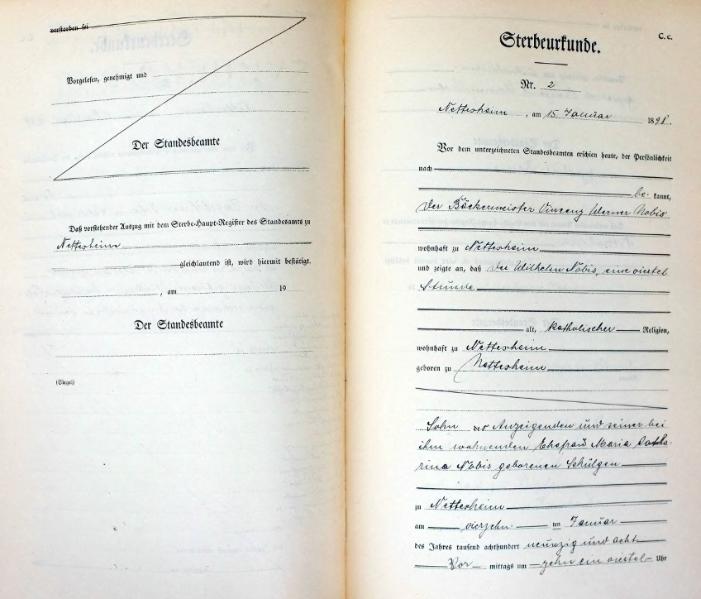 verstorben sei
Vorgelesen, genehmigt und
Der Standesbeamte
Daß vorstehender Auszug mit dem Sterbe-Haupt-Register des Standesamts zu
Nettersheim
gleichlautend ist, wird hiermit bestätigt.
, am 19
Der Standesbeamte
(Siegel)
C. c.
Sterbeurkunde.
Nr. 2
Nettersheim, am 15. Januar 1898.
Vor dem unterzeichneten Standesbeamten erschien heute, der Persönlichkeit
nach
be kannt,
der Bäckermeister Vincenz Werner Nobis
wohnhaft zu Nettersheim
und zeigte an, daß der Wilhelm Nobis, eine viertel
Stunde
alt, katholischer Religion,
wohnhaft zu Nettersheim
geboren zu Nettersheim
Sohn des Anzeigenden und seiner bei
ihm wohnenden Ehefrau Maria Catha-
rina Nobis geborenen Schülgen
zu Nettersheim
am vierzehn ten Januar
des Jahres tausend achthundert neunzig und acht
Vor mittags um zehn ein viertel Uhr